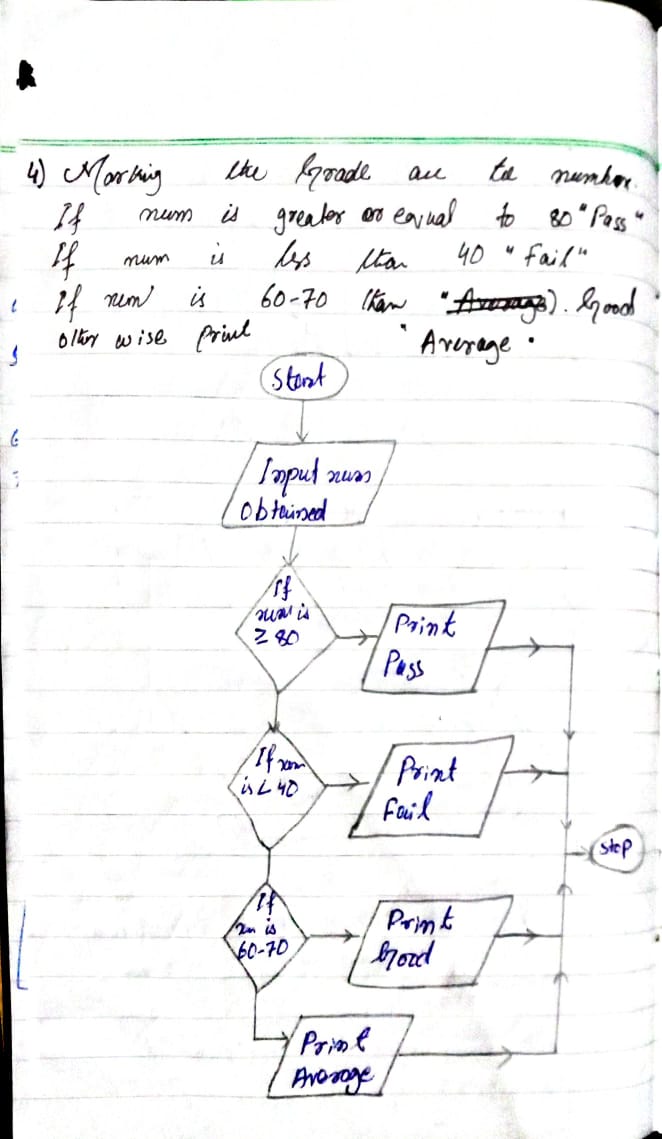 4) Marking the Grade acc to number.
If num is greater or equal to 80 "Pass"
If num is less than 40 "Fail"
If num is 60-70 than "Average). Good
other wise print "Average.
Start
Input num
obtained
If
num is
≥ 80
Print
Pass
If num
is < 40
Print
Fail
Stop
If
num is
60-70
Print
Good
Print
Avarage